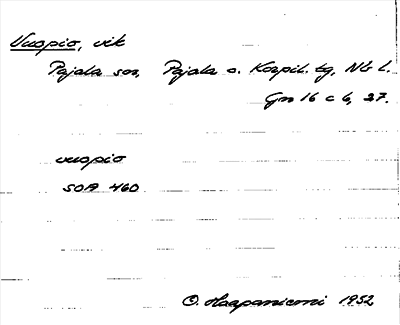 Vuopio, vik
Pajala sn, Pajala o. Korpil. tg, Nb l.
Gn 16 c 6, 27.
vuopio
SOA 460
O. Haapaniemi 1952